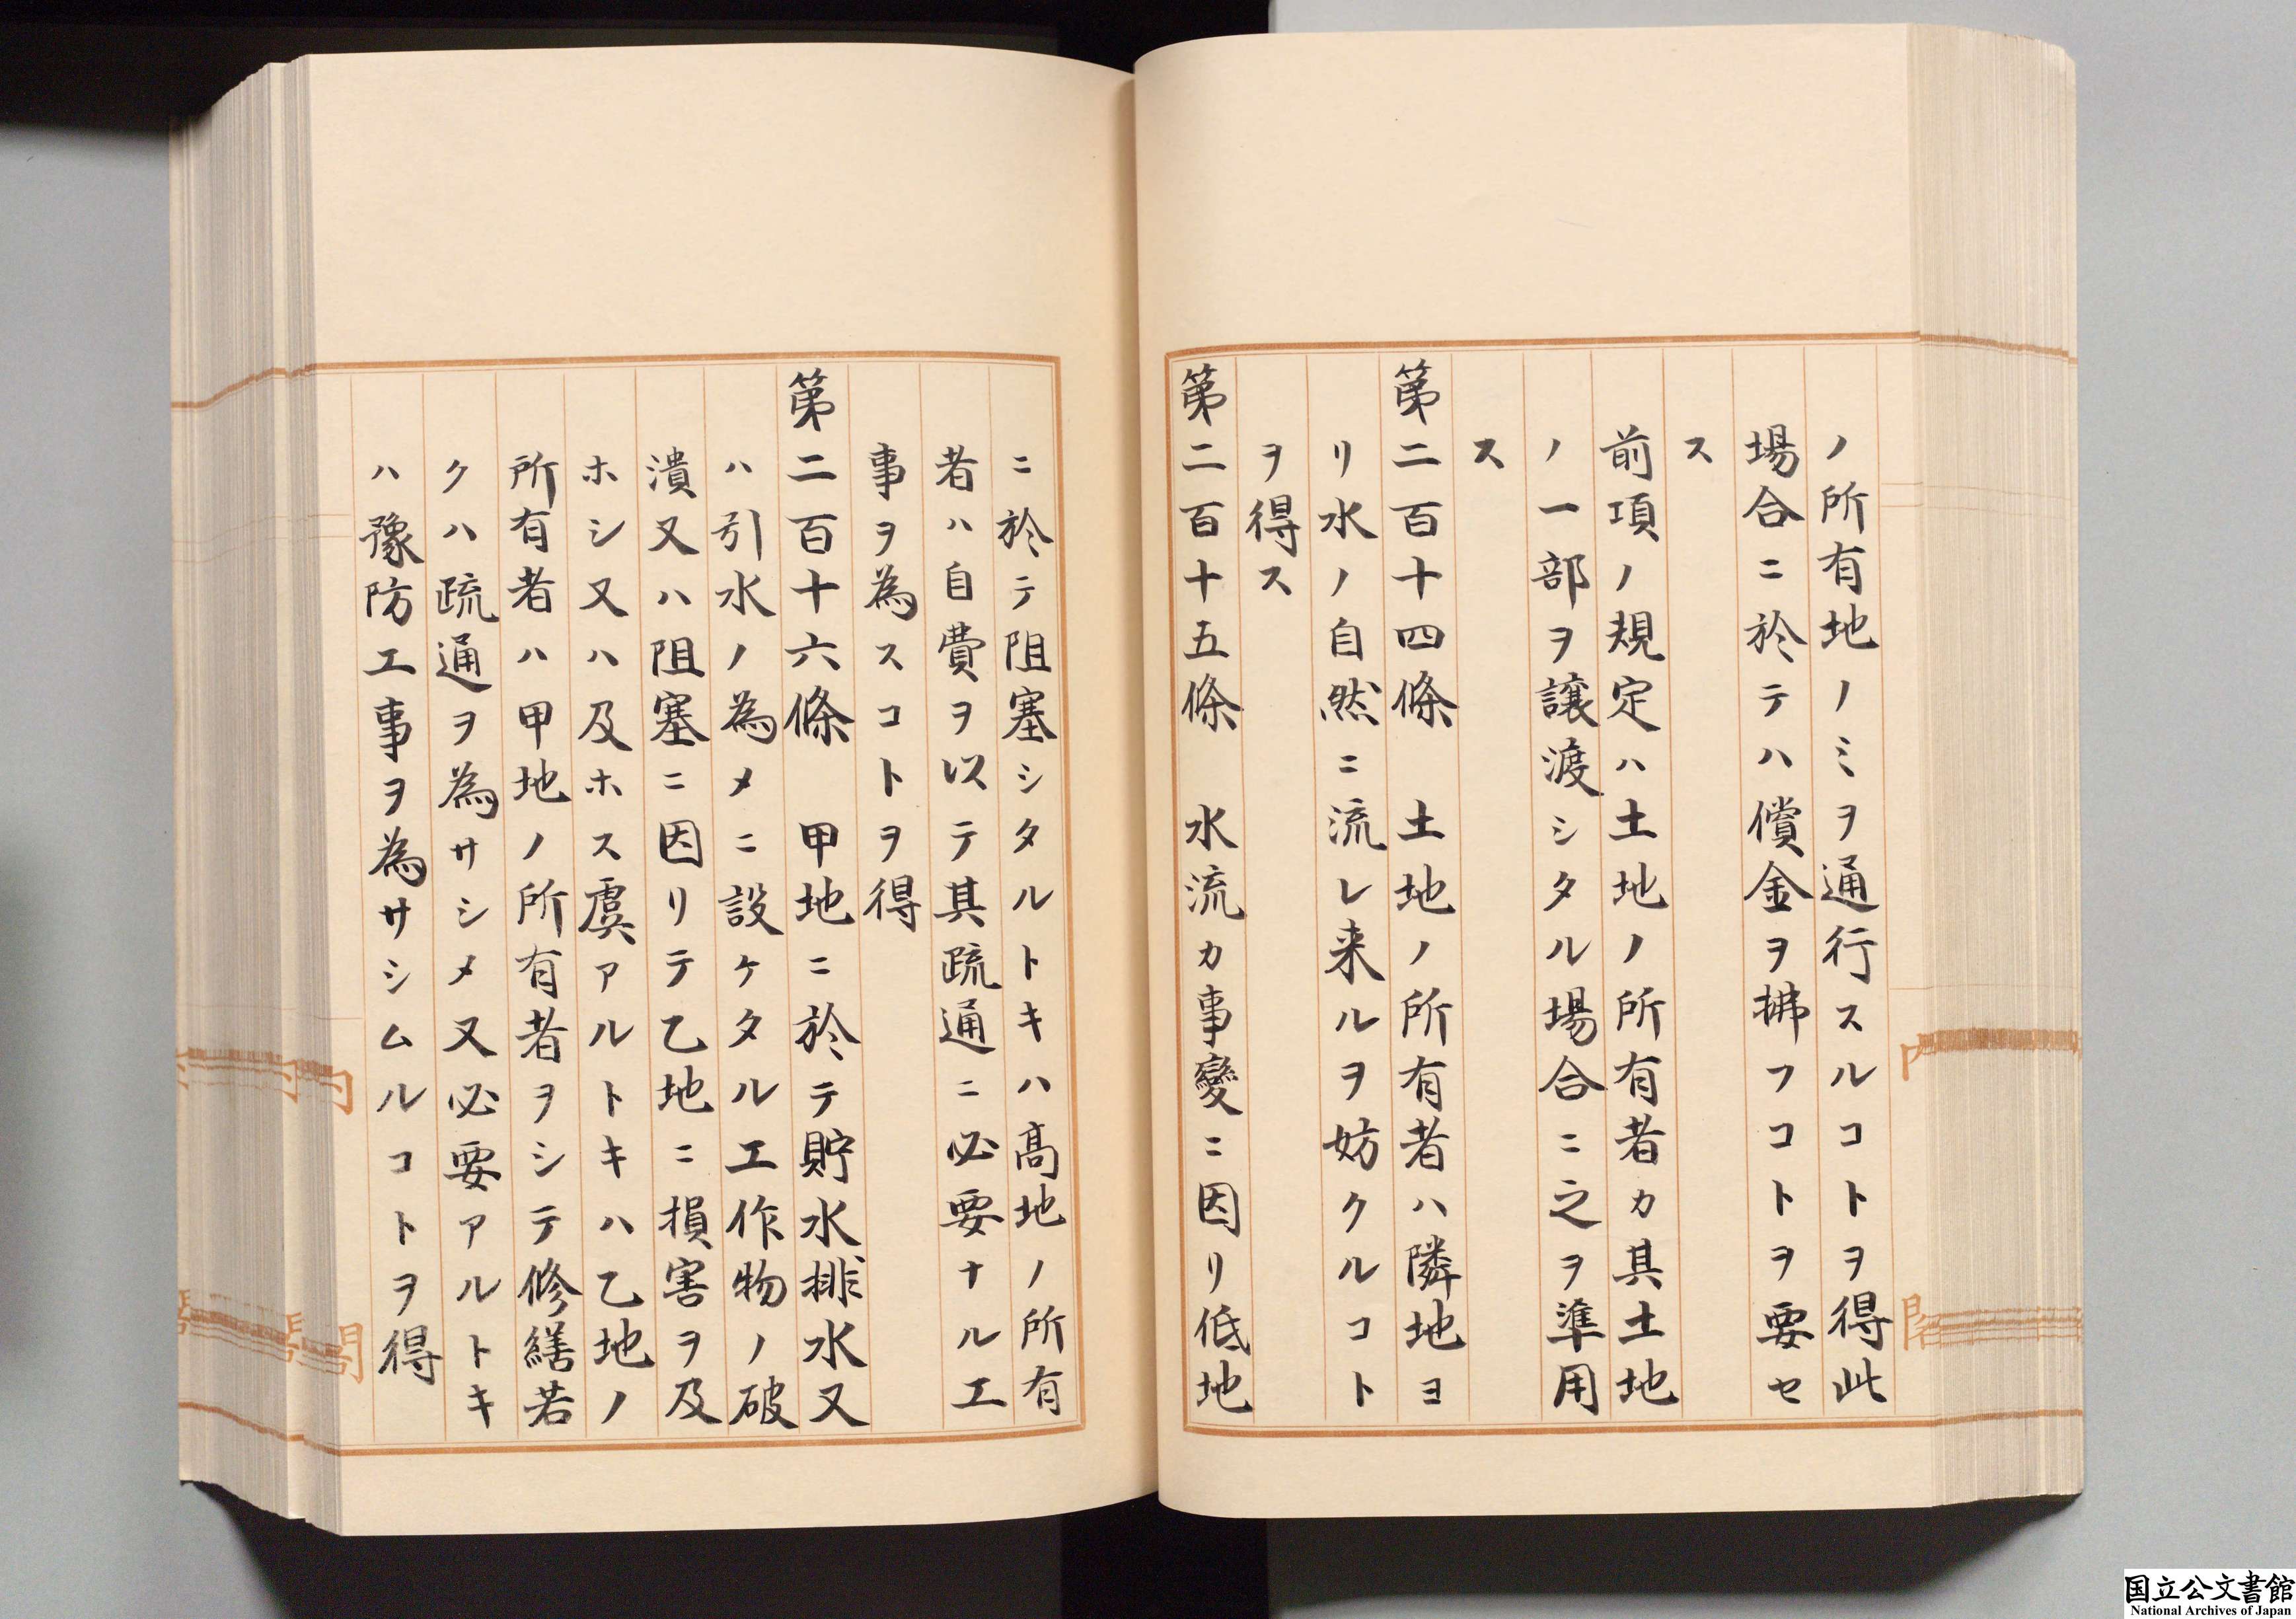 ノ所有地ノミヲ通行スルコトヲ得此
場合ニ於テハ償金ヲ拂フコトヲ要セ
ス
前項ノ規定ハ土地ノ所有者カ其土地
ノ一部ヲ譲渡シタル場合ニ之ヲ準用
ス
第二百十四條　土地ノ所有者ハ隣地ヨ
リ水ノ自然ニ流レ来ルヲ妨クルコト
ヲ得ス
第二百十五條　水流カ事變ニ因リ低地
ニ於テ阻塞シタルトキハ高地ノ所有
者ハ自費ヲ以テ其疏通ニ必要ナル工
事ヲ為スコトヲ得
第二百十六條　甲地ニ於テ貯水排水又
ハ引水ノ為メニ設ケタル工作物ノ破
潰又ハ阻塞ニ因リテ乙地ニ損害ヲ及
ホシ又ハ及ホス虞アルトキハ乙地ノ
所有者ハ甲地ノ所有者ヲシテ修繕若
クハ疏通ヲ為サシメ又必要アルトキ
ハ豫防工事ヲ為サシムルコトヲ得
国立公文書館
National Archives of Japan